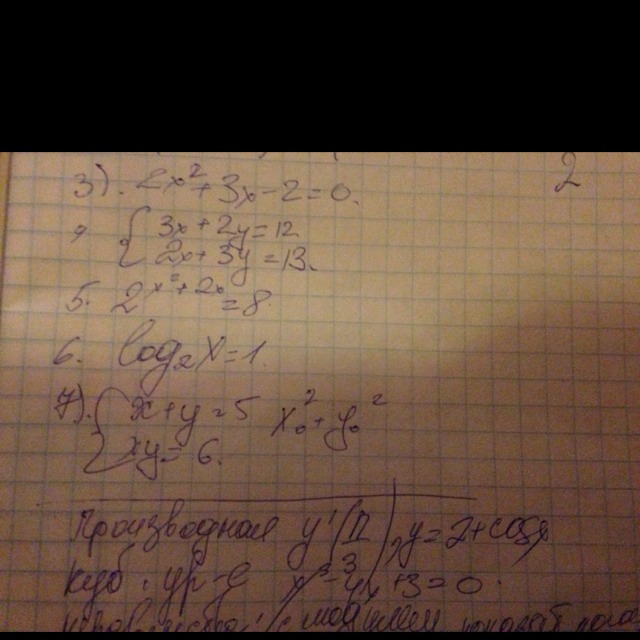 3). 2x²+3x-2=0. 2
{3x+2y=12
2x+3y=13.
5. 2^(x²+2x)=8
6. log₂x=1.
7). {x+y=5 x₀²+y₀²
xy=6.
Производная y'(π), y=2+cosx
куб. ур-е 4x+3=0.
с модулем